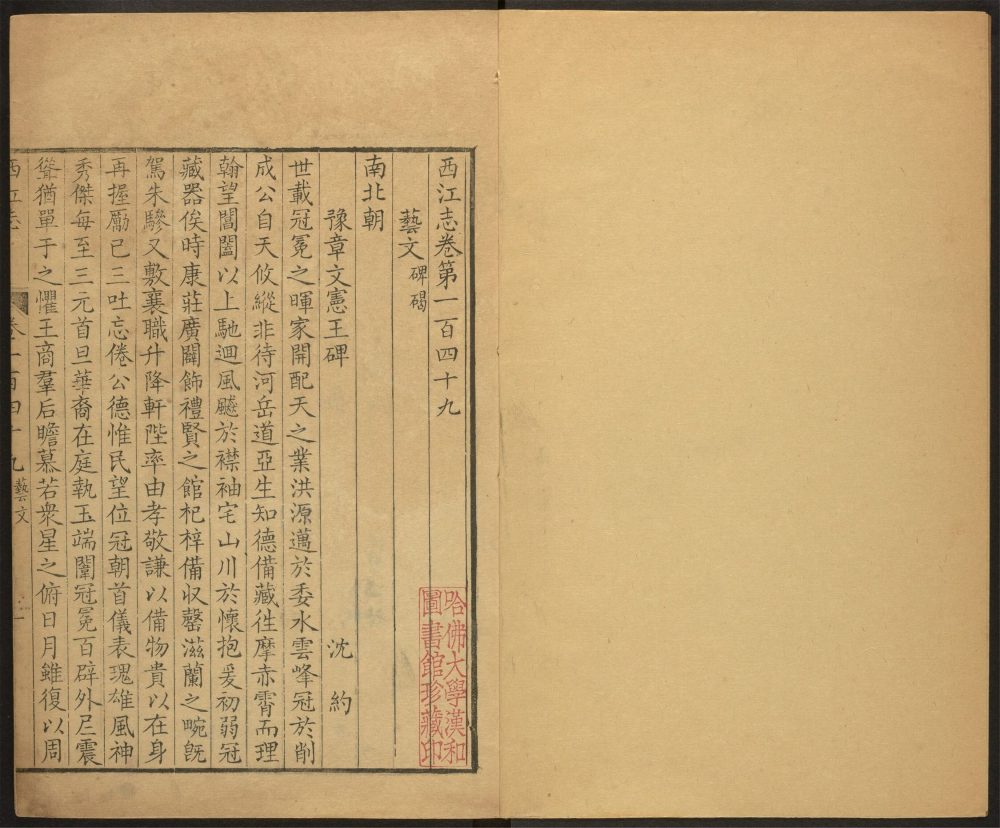 西江志卷第一百四十九
藝文碑碣
南北朝
豫章文憲王碑 沈約
世載冠冕之暉家開配天之業洪源邁於委水雲峰冠於削
成公自天攸縱非待河岳道亞生知德備藏徃摩赤霄而理
翰望閶闔以上馳迴風飈於襟袖宅山川於懷抱爰初弱冠
藏器俟時康莊廣闢飾禮賢之館杞梓備収罄滋蘭之畹旣
駕朱驂又敷襄職升降軒陛率由孝敬謙以備物貴以在身
再握勵已三吐忘倦公德惟民望位冠朝首儀表瑰雄風神
秀傑每至三元首旦華裔在庭執玉端闈冠冕百辟外尼震
聳猶單于之懼王商羣后瞻慕若衆星之俯日月雖復以周
西江志 卷一百四十九藝文 一
哈佛大學漢和
圖書館珍藏印